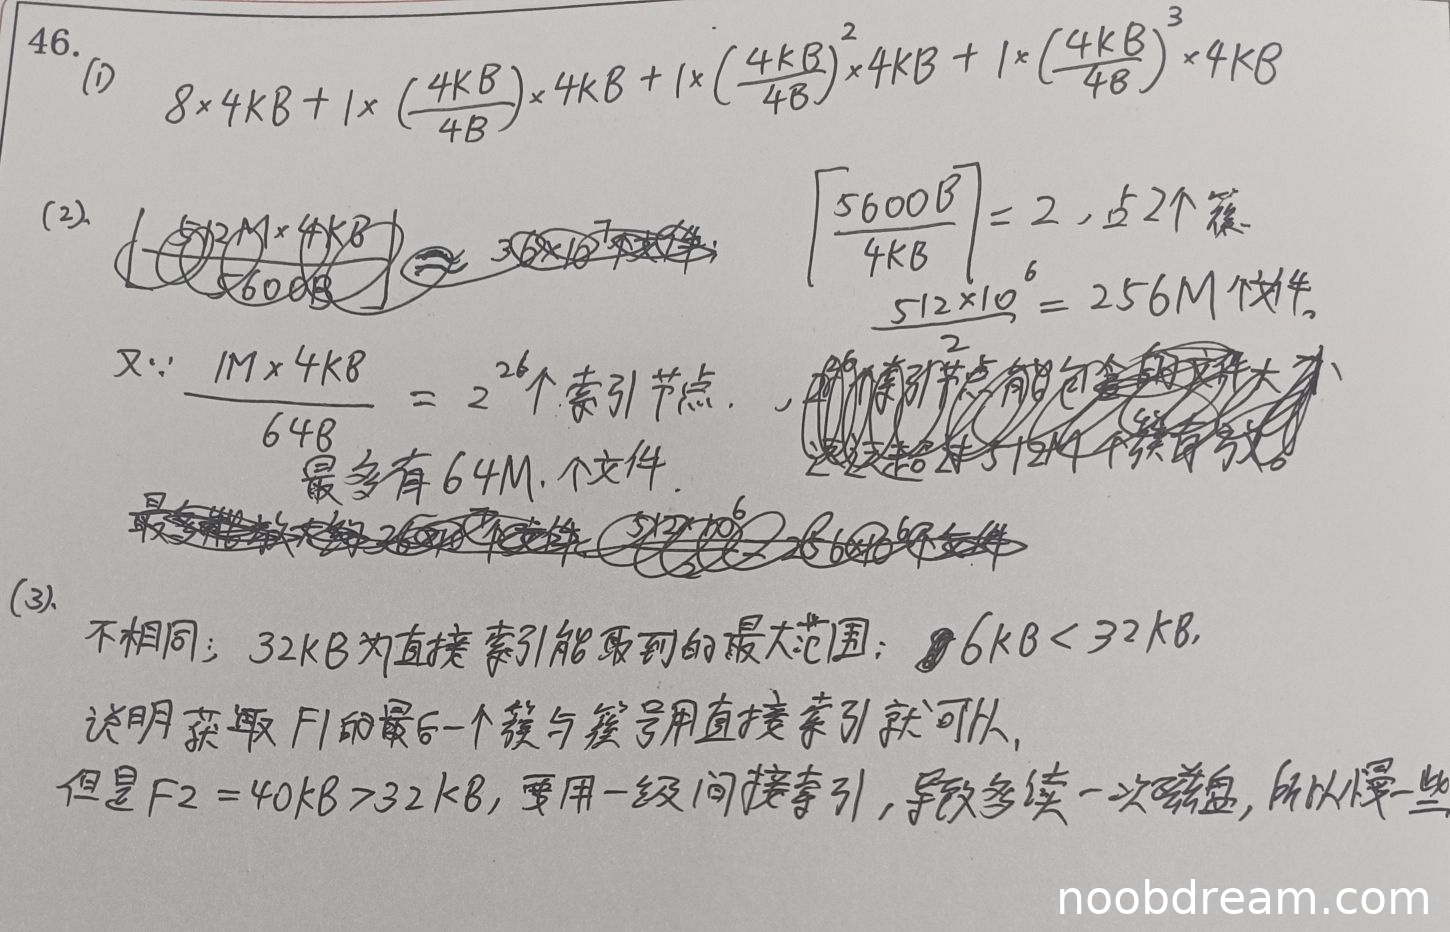 46.
(1) 8×4KB+1×(4KB/4B)×4KB+1×(4KB/4B)²×4KB+1×(4KB/4B)³×4KB
(2). ⌈5600B/4KB⌉=2,占2个簇.
512×10⁶/2=256M个文件。
又∵ 1M×4KB/64B = 2²⁶个索引节点.
最多有64M.个文件.
(3).
不相同; 32KB为直接索引能取到的最大范围; 6KB<32KB,
说明获取F1的最后一个簇与簇号用直接索引就可以,
但是F2=40KB>32KB,要用一级间接索引,导致多读一次磁盘,所以慢一些
noobdream.com